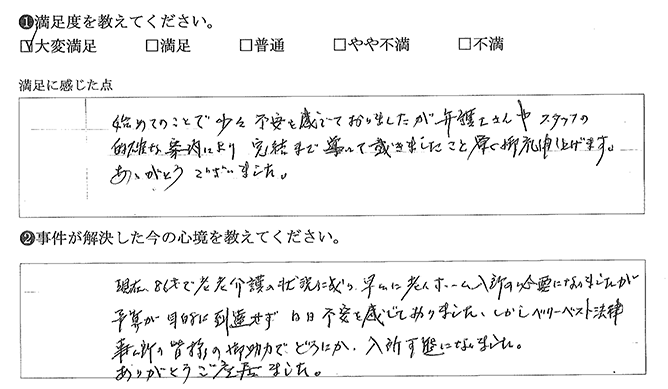 ❶満足度を教えてください。
☑大変満足 □満足 □普通 □やや不満 □不満
満足に感じた点
始めてのことで少々不安を感じておりましたが弁護士さんやスタッフの
的確な案内により完結まで導いて戴きましたこと厚く御礼申し上げます。
ありがとうございました。
❷事件が解決した今の心境を教えてください。
現在、86才で老老介護の状況にあり、早めに老人ホーム入所が必要になりましたが
予算が目的に到達せず日日不安を感じておりました、しかしベリーベスト法律
事ム所の皆様の御助力でどうにか、入所可能になりました。
ありがとうご座居ました。